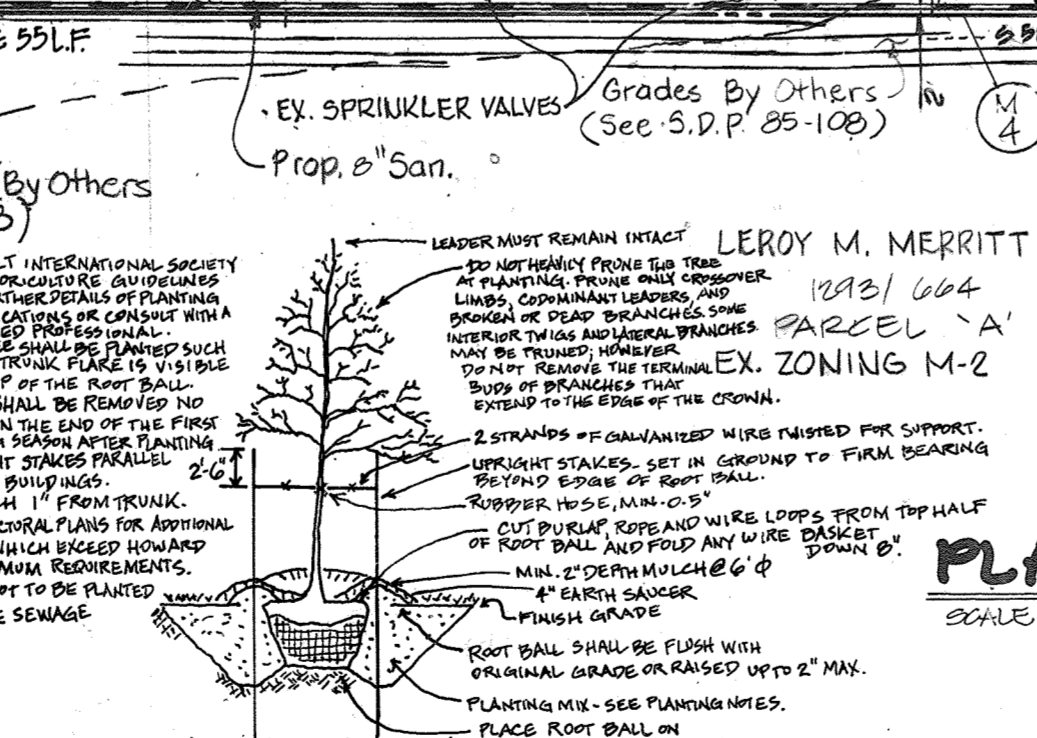 55 L.F.
EX. SPRINKLER VALVES
Grades By Others
(See S.D.P. 85-108)
M
4
Prop. 8" San.
By Others
LT INTERNATIONAL SOCIETY
ORICULTURE GUIDELINES
RTHER DETAILS OF PLANTING
ICATIONS OR CONSULT WITH A
ED PROFESSIONAL.
EE SHALL BE PLANTED SUCH
TRUNK FLARE IS VISIBLE
P OF THE ROOT BALL.
SHALL BE REMOVED NO
N THE END OF THE FIRST
SEASON AFTER PLANTING
HT STAKES PARALLEL
BUILDINGS.
H 1" FROM TRUNK.
CTURAL PLANS FOR ADDITIONAL
WHICH EXCEED HOWARD
MUM REQUIREMENTS.
OT TO BE PLANTED
E SEWAGE
2'-6"
LEADER MUST REMAIN INTACT
DO NOT HEAVILY PRUNE THE TREE
AT PLANTING. PRUNE ONLY CROSSOVER
LIMBS, CODOMINANT LEADERS, AND
BROKEN OR DEAD BRANCHES. SOME
INTERIOR TWIGS AND LATERAL BRANCHES
MAY BE PRUNED; HOWEVER
DO NOT REMOVE THE TERMINAL
BUDS OF BRANCHES THAT
EXTEND TO THE EDGE OF THE CROWN.
LEROY M. MERRITT
1293/664
PARCEL 'A'
EX. ZONING M-2
2 STRANDS OF GALVANIZED WIRE TWISTED FOR SUPPORT.
UPRIGHT STAKES - SET IN GROUND TO FIRM BEARING
BEYOND EDGE OF ROOT BALL.
RUBBER HOSE, MIN. 0.5"
CUT BURLAP, ROPE AND WIRE LOOPS FROM TOP HALF
OF ROOT BALL AND FOLD ANY WIRE BASKET
DOWN 8".
MIN. 2" DEPTH MULCH @ 6' Φ
4" EARTH SAUCER
FINISH GRADE
ROOT BALL SHALL BE FLUSH WITH
ORIGINAL GRADE OR RAISED UP TO 2" MAX.
PLANTING MIX - SEE PLANTING NOTES.
PLACE ROOT BALL ON
PLA
SCALE